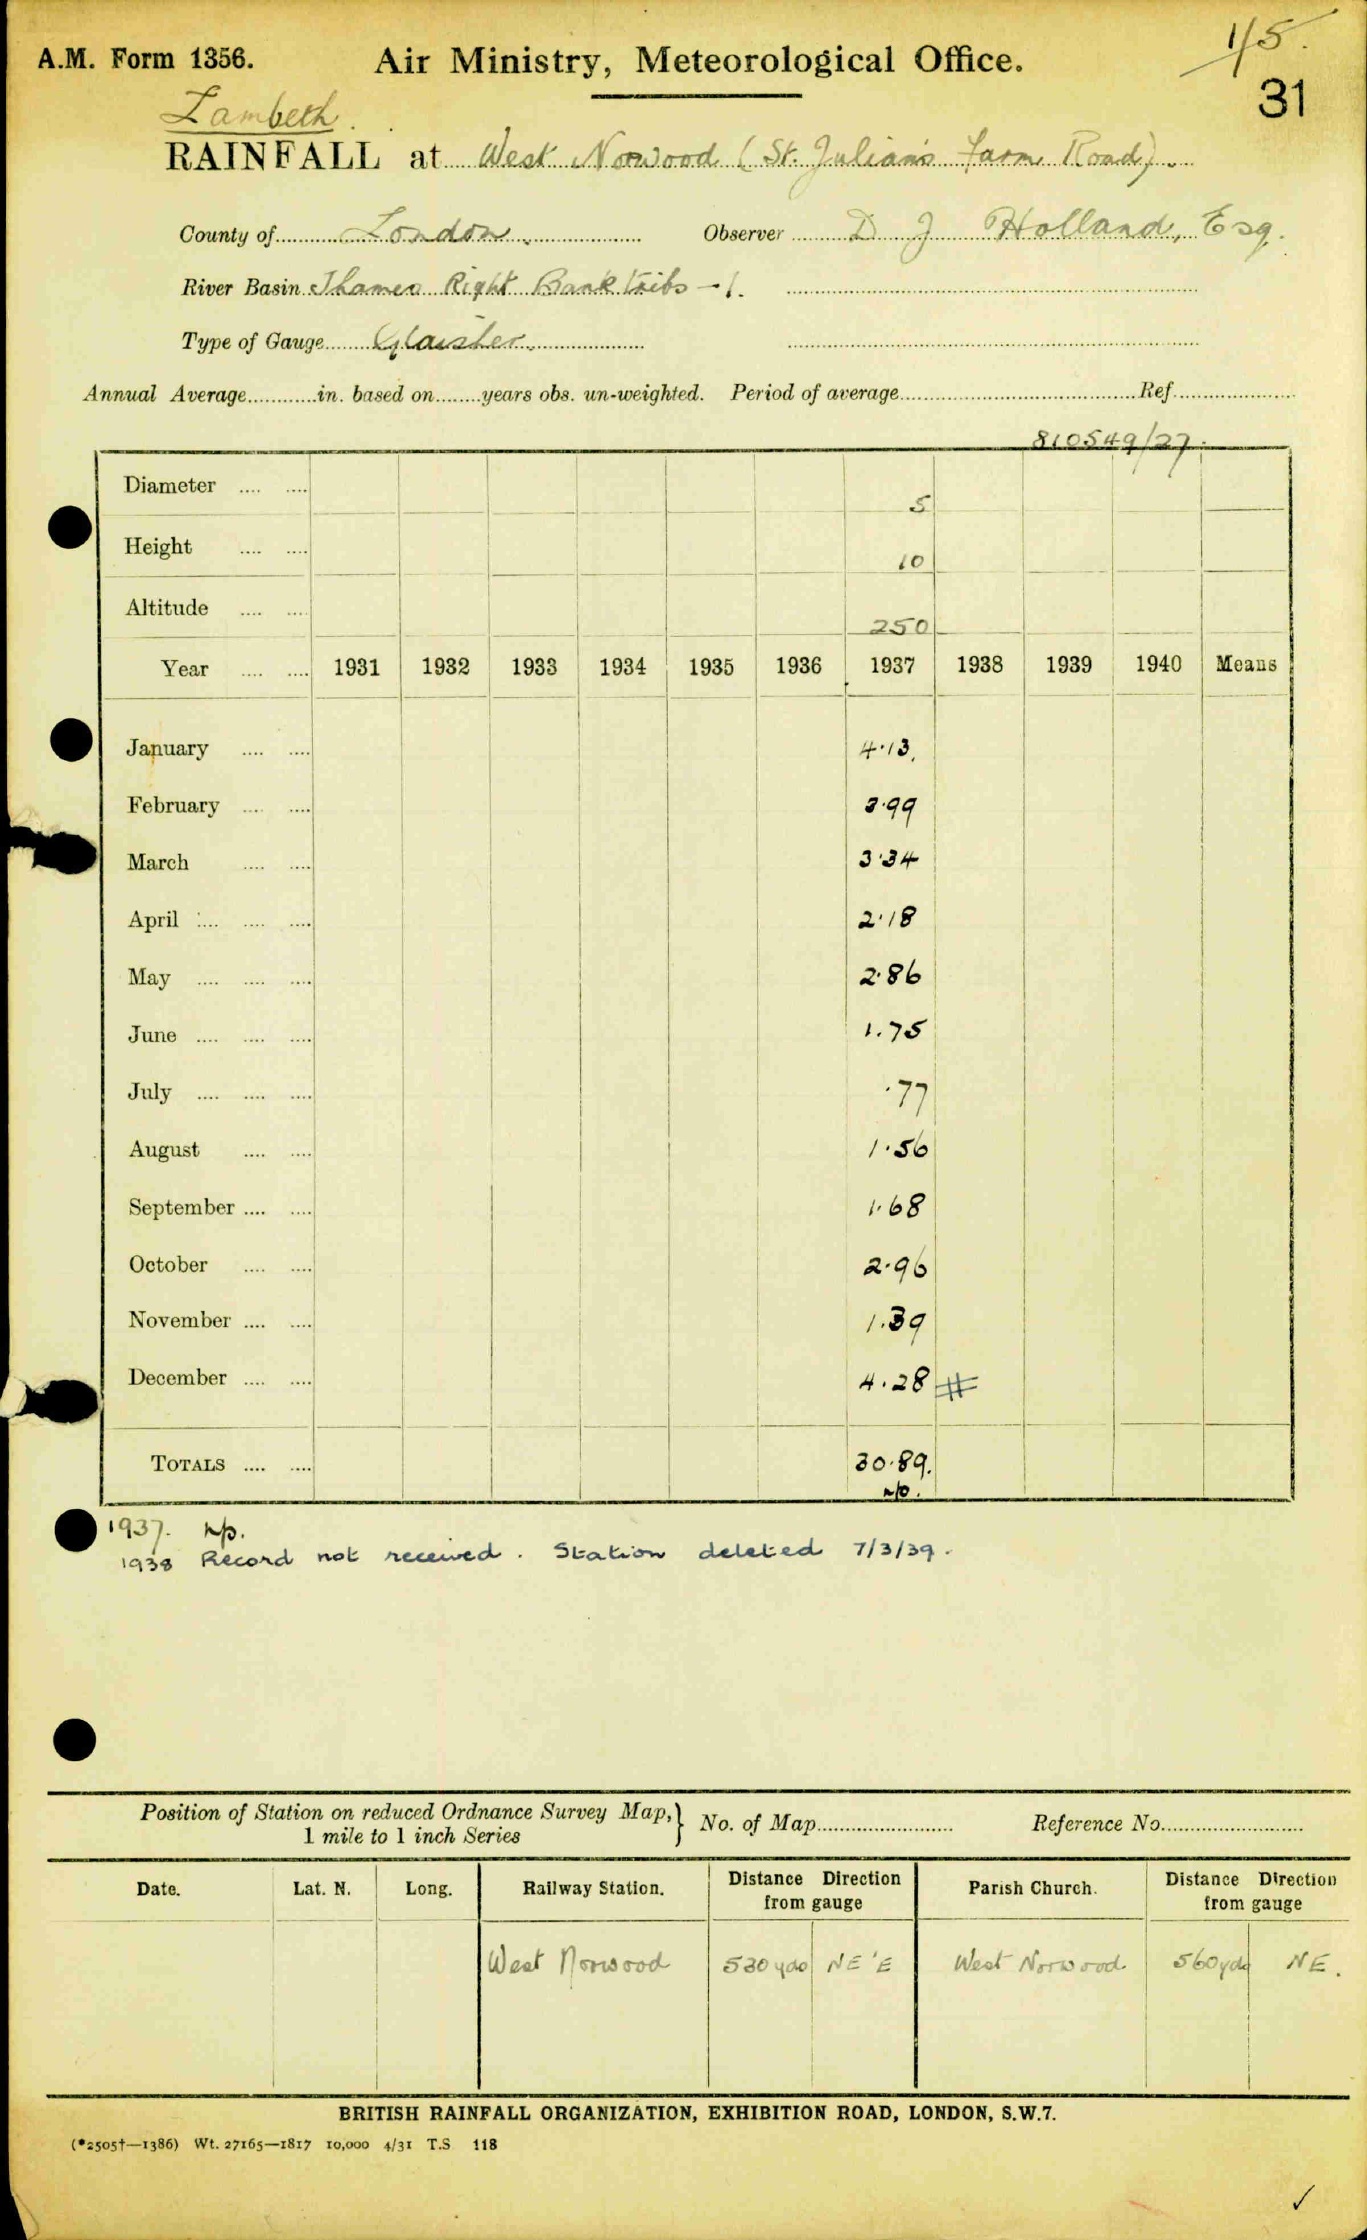 1/5.
A.M. Form 1356. Air Ministry, Meteorological Office.
31
Lambeth.
RAINFALL at West Norwood (St. Julian's Farm Road).
County of London. Observer D J Holland, Esq.
River Basin Thames Right Bank tribs - 1.
Type of Gauge Glaisher.
Annual Average in. based on years obs. un-weighted. Period of average Ref.
810549/27.
Diameter 5
Height 10
Altitude 250
Year 1931 1932 1933 1934 1935 1936 1937 1938 1939 1940 Means
January 4.13.
February 3.99
March 3.34
April 2.18
May 2.86
June 1.75
July .77
August 1.56
September 1.68
October 2.96
November 1.39
December 4.28 #
TOTALS 30.89.
np.
1937. np.
1938 Record not received. Station deleted 7/3/39.
Position of Station on reduced Ordnance Survey Map,} No. of Map Reference No.
1 mile to 1 inch Series
Date. Lat. N. Long. Railway Station. Distance Direction Parish Church. Distance Direction
from gauge from gauge
West Norwood 530 yds NE'E West Norwood 560 yds NE.
BRITISH RAINFALL ORGANIZATION, EXHIBITION ROAD, LONDON, S.W.7.
(*2505†—1386) Wt. 27165—1817 10,000 4/31 T.S 118